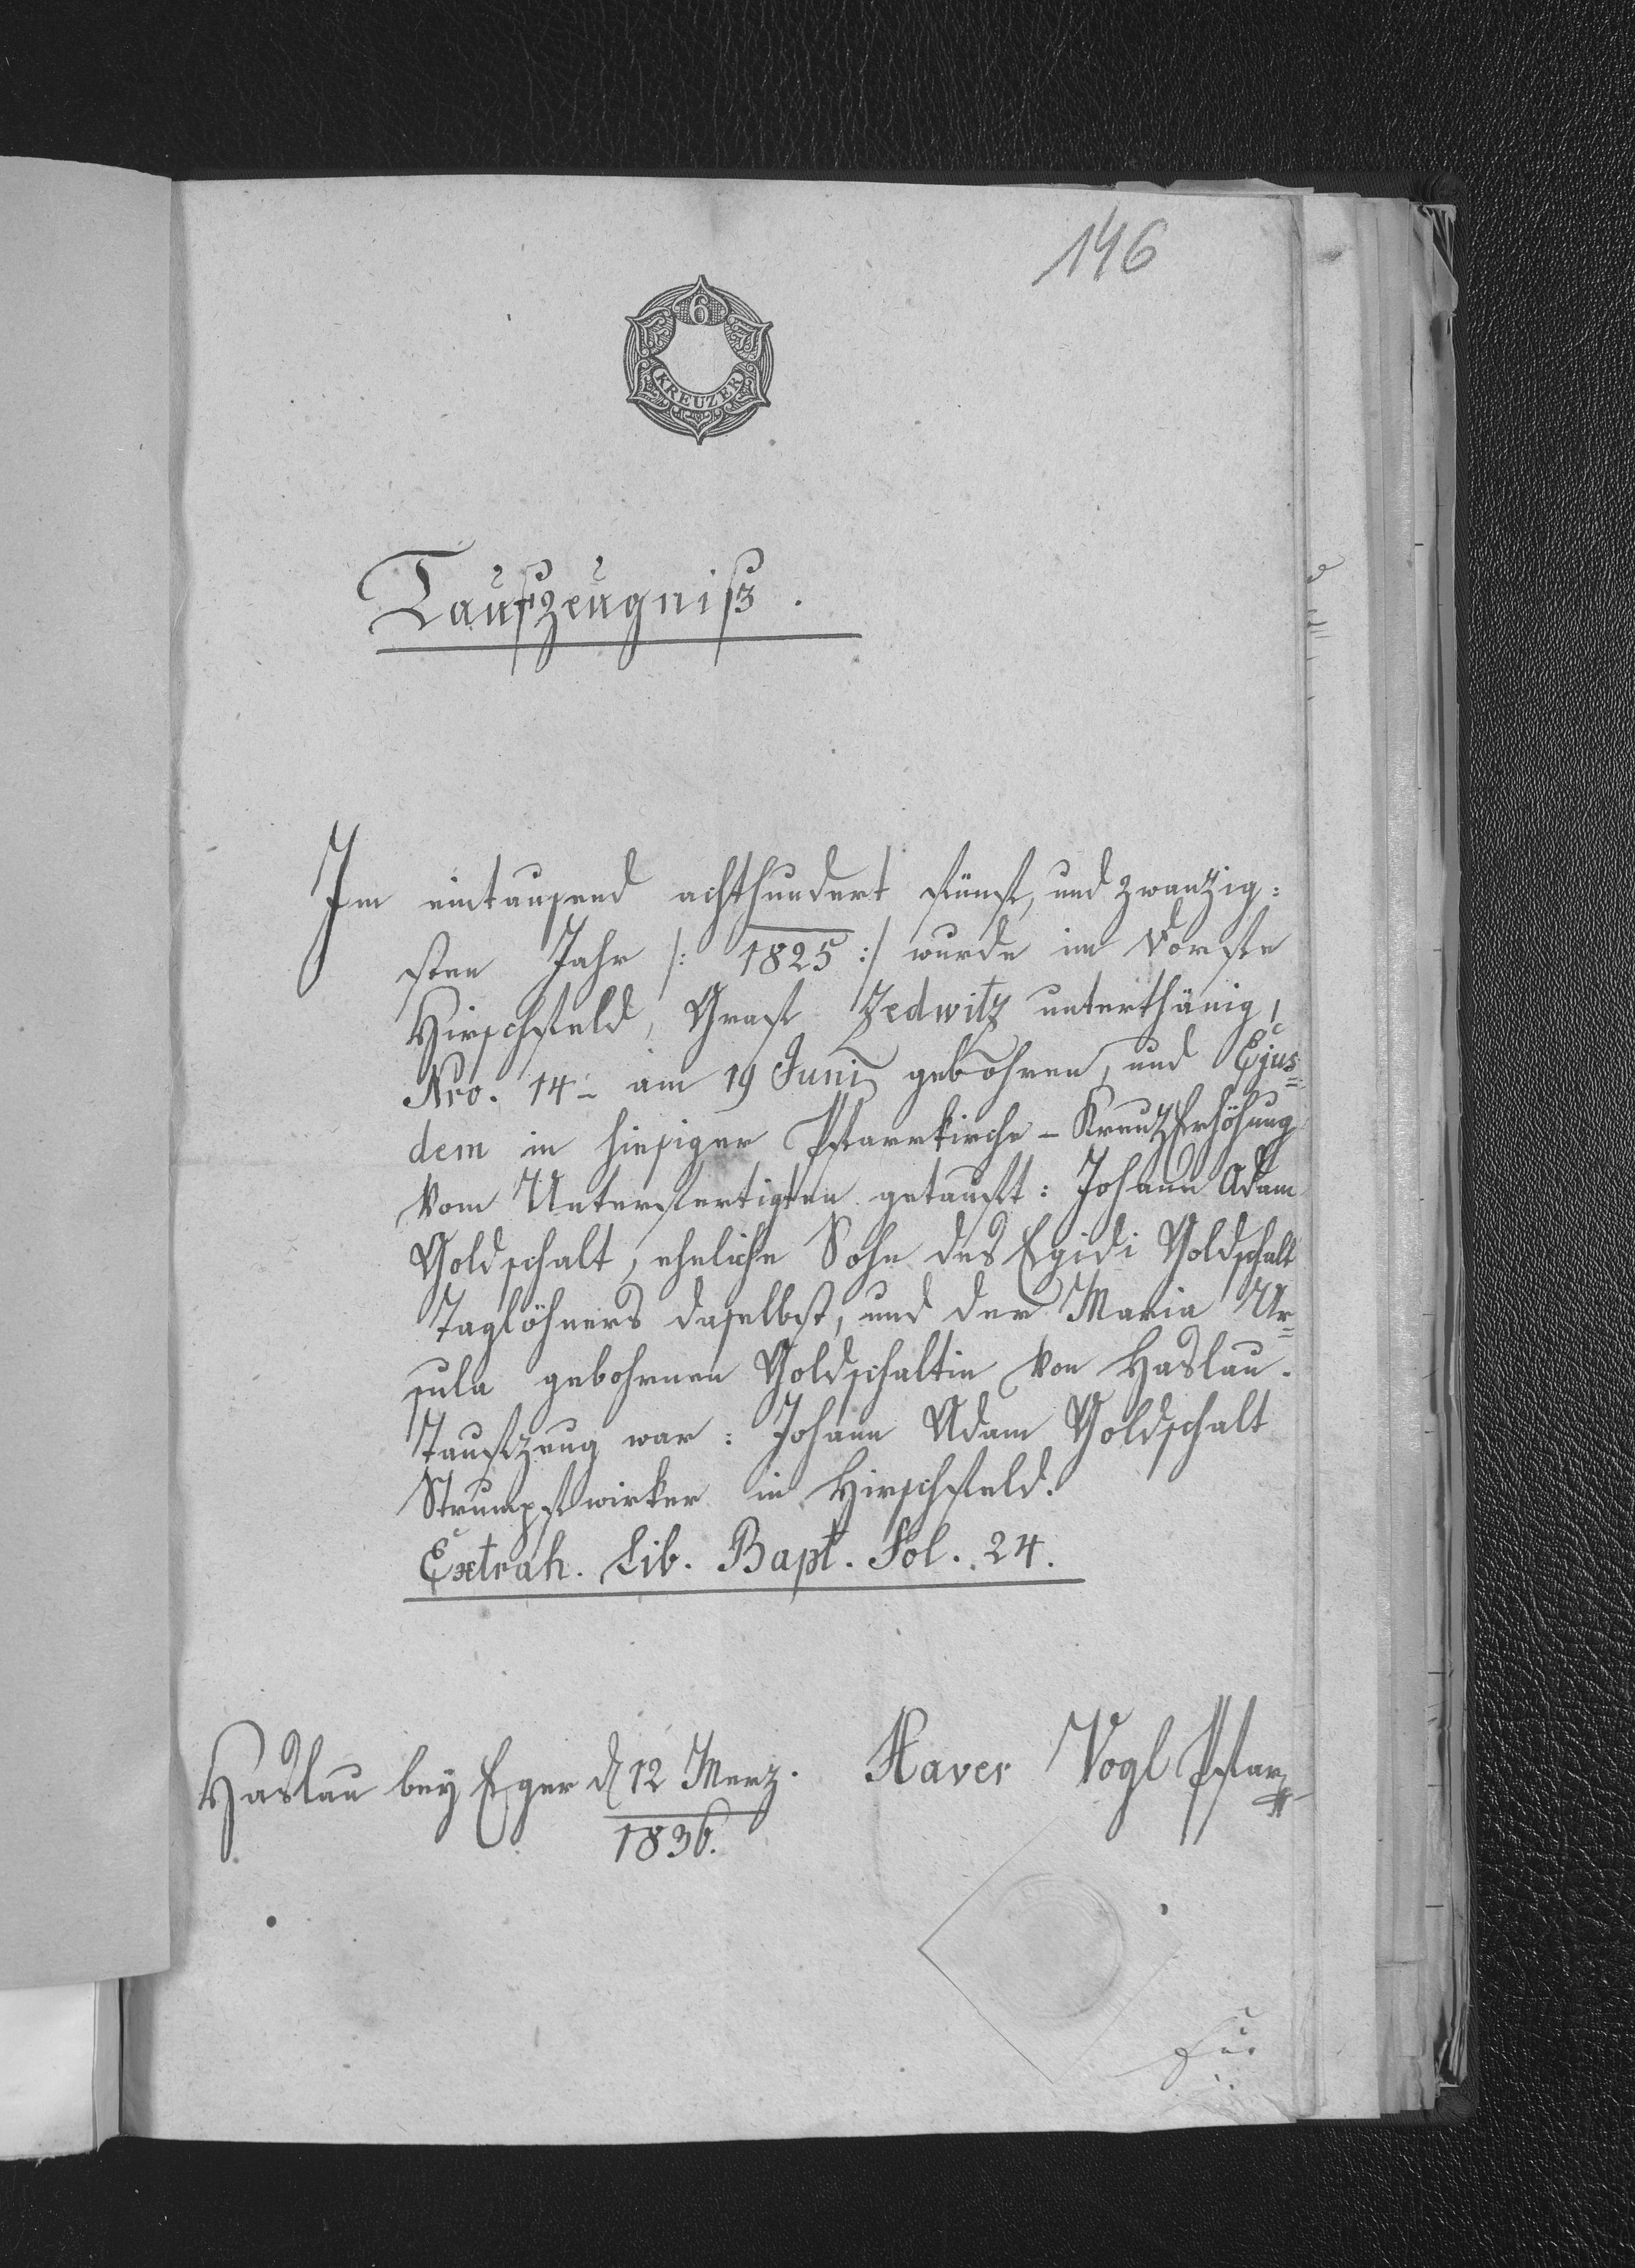 146
6
KREUZER
Taufzeugniß.
Im eintausend achthundert fünf, und zwanzig:
sten Jahr /: 1825 :/ wurde im Dorfe
Hirschfeld, Graf Zedwitz unterthänig,
Nro. 14 - am 19 Juni gebohren, und Ejus=
dem in hiesiger Pfarrkirche - Kreutz Erhöhung
vom Unterfertigten getauft: Johann Adam
Goldschalt, eheliche Sohn des Egidi Goldschalt
Taglöhners daselbst, und der Maria Ur=
sula gebohrnen Goldschaltin von Haslau.
Taufzeug war: Johann Adam Goldschalt
Strumpfwirker in Hirschfeld.
Extrah. Lib. Bapt. Fol. 24.
Haslau bey Eger d 12 Merz. Xaver Vogl Pfar
1836.